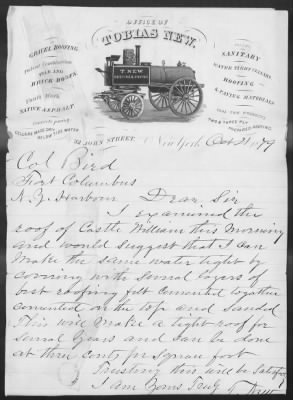 OFFICE OF
TOBIAS NEW,
GRAVEL ROOFING
FOLD AND
BRICK ROOFS
NATIVE ASPHALT
CELLARS MADE DRY
BELOW TIDE WATER
T. NEW
SANITARY
WATER TIGHT CELLARS
ROOFING
& PAVING MATERIALS
TWO & THREE PLY
PREPARED ROOFING
32 JOHN STREET. New York Oct 21 1879
Col Bird
Fort Columbus
N.Y. Harbour Dear Sir
I examined the
roof of Castle William this Morning
and would suggest that I can
make the same water tight by
covering with several layers of
best roofing felt cemented together
cemented on the top and sanded
This will make a tight roof for
several years and can be done
at three cents per square foot
Trusting this will be satisfactory
I am Yours Truly T. New